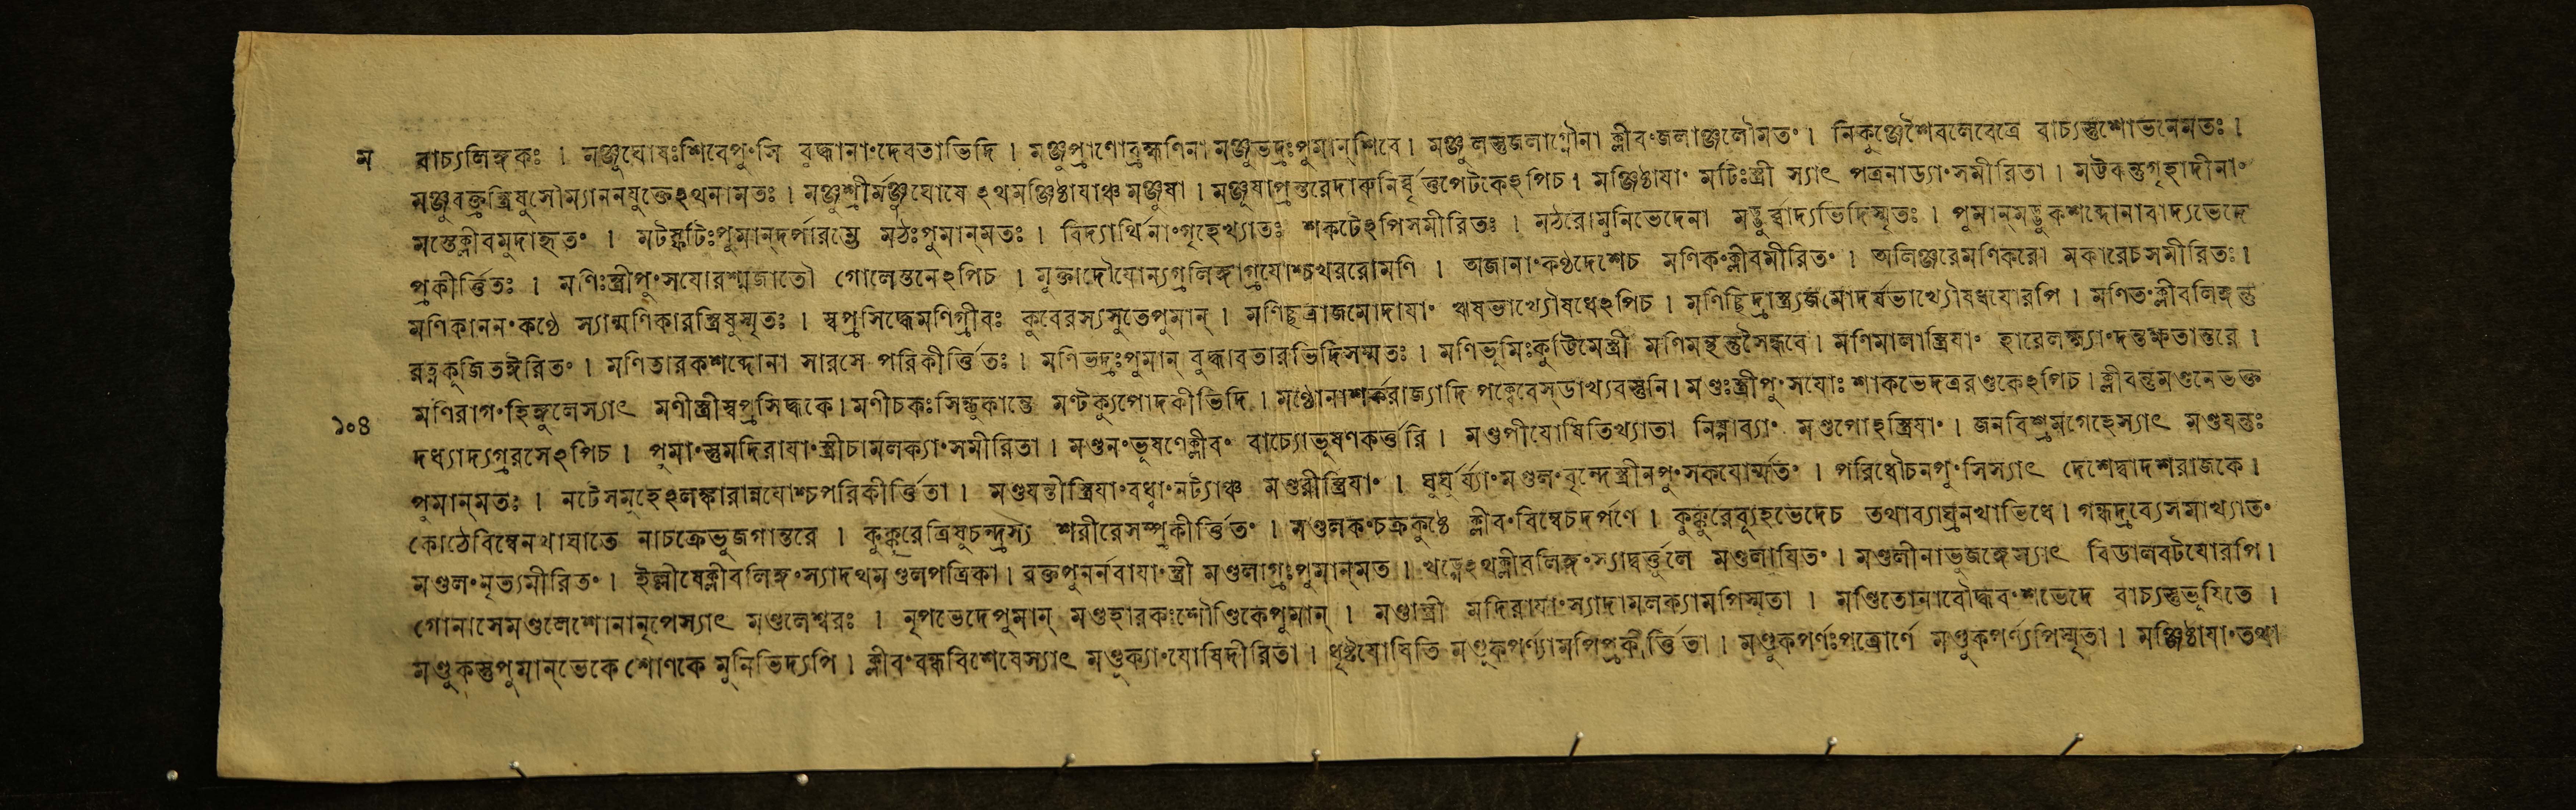 ম বাচ্যলিঙ্গকঃ । মঞ্জুঘোষঃশিবেপুংসি বুদ্ধানাংদেবতাভিদি । মঞ্জুপ্রাণোব্রহ্মণিনা মঞ্জুভদ্রঃপুমান্শিবে । মঞ্জুলস্তুজলাগ্নৌনা ক্লীবংজলাঞ্জলৌমতং । নিকুঞ্জেশৈবলেবেত্রে বাচ্যস্তুশোভনেমতঃ ।
মঞ্জুবক্ত্রস্ত্রিষুসৌম্যাননযুক্তেঽথনামতঃ । মঞ্জুশ্রীর্মঞ্জুঘোষে ঽথমঞ্জিষ্ঠাযাঞ্চ মঞ্জুষা । মঞ্জূষাপ্রস্তরেদারুনির্ব্বৃত্তপেটকেঽপিচ । মঞ্জিষ্ঠাযাং মটিঃস্ত্রী স্যাৎ পত্রনাড্যাংসমীরিতা । মট্টকন্তুগৃহাদীনাং
মস্তেক্লীবমুদাহৃতং । মটস্ফটিঃপুমান্দর্পারম্ভে মঠঃপুমান্মতঃ । বিদ্যার্থিনাংগৃহেখ্যাতঃ শকটেঽপিসমীরিতঃ । মঠরোমুনিভেদেনা মড্ডুর্ব্বাদ্যভিদিস্মৃতঃ । পুমান্মড্ডুকশব্দোনাবাদ্যভেদে
প্রকীর্ত্তিতঃ । মণিঃস্ত্রীপুংসযোরশ্মজাতৌ গোলেস্তনেঽপিচ । মুক্তাদৌযোন্যগ্রলিঙ্গাগ্রযোশ্চখররোমণি । অজানাংকণ্ঠদেশেচ মণিকংক্লীবমীরিতং । অলিঞ্জরেমণিকরো মকারেচসমীরিতঃ ।
মণিকাননংকণ্ঠে স্যান্মণিকারস্ত্রিষুস্মৃতঃ । স্বপ্রসিদ্ধেমণিগ্রীবঃ কুবেরস্যসুতেপুমান্ । মণিচ্ছত্রাজমোদাযাং ঋষভাখ্যৌষধেঽপিচ । মণিচ্ছিদ্রাস্ত্র্যজমোদর্ষভাখ্যৌষধযোরপি । মণিতংক্লীবলিঙ্গন্তু
রত্নকুজিতঈরিতং । মণিতারকশব্দোনা সারসে পরিকীর্ত্তিতঃ । মণিভদ্রঃপুমান্ বুদ্ধাবতারভিদিসম্মতঃ । মণিভূমিঃকুট্টিমেস্ত্রী মণিমন্থন্তুসৈন্ধবে । মণিমালাস্ত্রিযাং হারেলক্ষ্ম্যাংদন্তক্ষতান্তরে ।
মণিরাগংহিঙ্গুলেস্যাৎ মণীস্ত্রীস্বপ্রসিদ্ধকে । মণীচকঃসিন্ধুকান্তে মণ্টক্যুপোদকীভিদি । মণ্ঠোনাশর্করাজ্যাদি পক্বেবেস্ডাখ্যবস্তুনি । মণ্ডঃস্ত্রীপুংসযোঃ শাকভেদএরণ্ডকেঽপিচ । ক্লীবন্তুমণ্ডনেভক্ত
১০৪ দধ্যাদ্যগ্ররসেঽপিচ । পুমাংস্তুমদিরাযাংস্ত্রীচামলক্যাংসমীরিতা । মণ্ডনংভূষণেক্লীবং বাচ্যোভূষণকর্ত্তরি । মণ্ডপীযোষিতিখ্যাতা নিষ্পাব্যাং মণ্ডপোঽস্ত্রিযাং । জনবিশ্রমগেহেস্যাৎ মণ্ডযন্তঃ
পুমান্মতঃ । নটেসমূহেঽলঙ্কারান্নযোশ্চপরিকীর্ত্তিতা । মণ্ডযন্তীস্ত্রিযাংবধ্বাংনট্যাঞ্চ মণ্ডরীস্ত্রিযাং । ঘুর্ঘুর্য্যাংমণ্ডলংবৃন্দেস্ত্রীনপুংসকযোর্ম্মতং । পরিধৌচনপুংসিস্যাৎ দেশেদ্বাদশরাজকে ।
কোঠেবিম্বেনখাঘাতে নাচক্রেভুজগান্তরে । কুক্কুরেত্রিষুচন্দ্রস্য শরীরেসম্প্রকীর্ত্তিতং । মণ্ডলকংচক্রকুষ্ঠে ক্লীবংবিম্বেচদর্পণে । কুক্কুরেব্যূহভেদেচ তথাব্যাঘ্রনখাভিধে । গন্ধদ্রব্যেসমাখ্যাতং
মণ্ডলংনৃত্যমীরিতং । ইল্লীষেক্লীবলিঙ্গংস্যাদথমণ্ডলপত্রিকা । রক্তপুনর্নবাযাংস্ত্রী মণ্ডলাগ্রঃপুমান্মত । খড্গেঽথক্লীবলিঙ্গংস্যাদ্বর্ত্তুলে মণ্ডলাযিতং । মণ্ডলীনাভুজঙ্গেস্যাৎ বিডালবটযোরপি ।
গোনাসেমণ্ডলেশোনানৃপেস্যাৎ মণ্ডলেশ্বরঃ । নৃপভেদেপুমান্ মণ্ডহারকঃশৌণ্ডিকেপুমান্ । মণ্ডাস্ত্রী মদিরাযাংস্যাদামলক্যামপিস্মৃতা । মণ্ডিতোনাবৌদ্ধবংশভেদে বাচ্যস্তুভূষিতে ।
মণ্ডুকস্তুপুমান্ভেকে শোণকে মুনিভিদ্যপি । ক্লীবংবন্ধবিশেষেস্যাৎ মণ্ডুক্যাংযোষিদীরিতা । ধৃষ্টযোষিতি মণ্ডুকপর্ণ্যামপিপ্রকীর্ত্তিতা । মণ্ডুকপর্ণঃপত্রোর্ণে মণ্ডুকপর্ণ্যপিস্মৃতা । মঞ্জিষ্ঠাযাংতথা